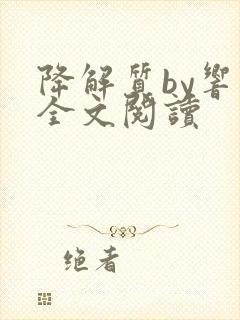 降解質by響
全文閱讀
绝者